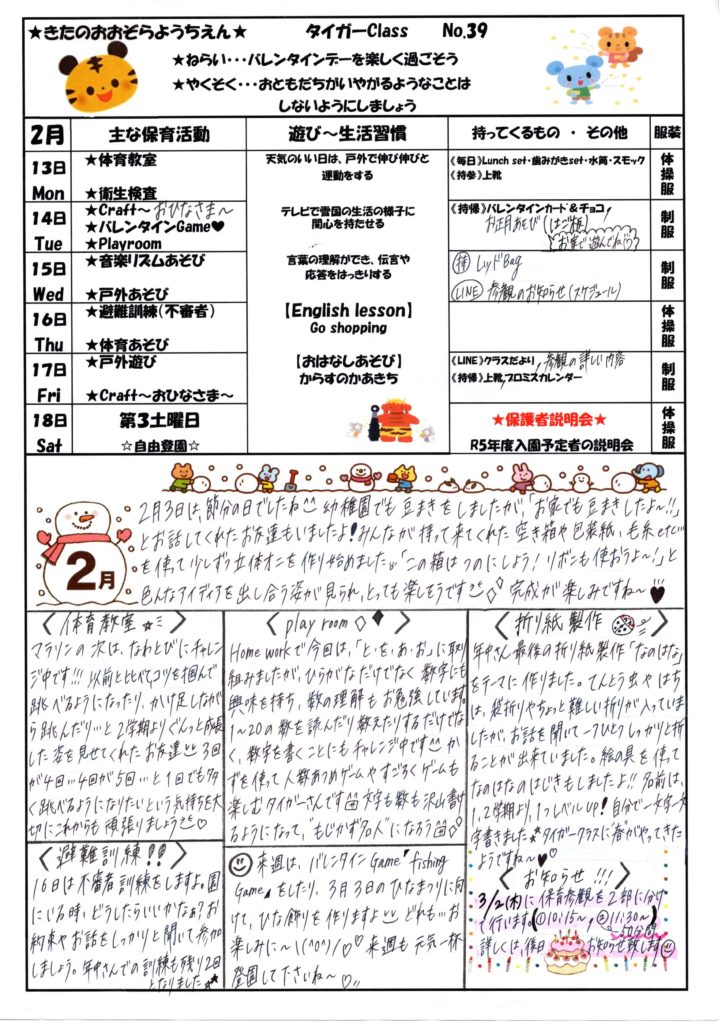 ★きたのおおぞらようちえん★ タイガーClass No.39
★ねらい・・・バレンタインデーを楽しく過ごそう
★やくそく・・・おともだちがいやがるようなことは
しないようにしましょう
2月 主な保育活動 遊び～生活習慣 持ってくるもの ・ その他 服装
13日 Mon
★体育教室
★衛生検査
天気のいい日は、戸外で伸び伸びと
運動をする
《毎日》Lunch set・歯みがきset・水筒・スモック
《持参》上靴
体操服
14日 Tue
★Craft～おひなさま～
★バレンタインGame♥
★Playroom
テレビで雪国の生活の様子に
関心を持たせる
《持帰》バレンタインカード&チョコ
お正月あそび(はご板)
お家で遊んでね♡
制服
15日 Wed
★音楽リズムあそび
★戸外あそび
言葉の理解ができ、伝言や
応答をはっきりする
(持) レッドBag
(LINE) 参観のお知らせ(スケジュール)
制服
16日 Thu
★避難訓練(不審者)
★体育あそび
【English lesson】
Go shopping
体操服
17日 Fri
★戸外遊び
★Craft～おひなさま～
【おはなしあそび】
からすのかあきち
《LINE》クラスだより,参観の詳しい内容
《持帰》上靴,プロミスカレンダー
制服
18日 Sat
第3土曜日
☆自由登園☆
★保護者説明会★
R5年度入園予定者の説明会
体操服
2月
2月3日は、節分の日でしたね 幼稚園でも豆まきをしましたが、「お家でも豆まきしたよ～!!」
とお話してくれたお友達もいましたよ!みんなが持って来てくれた空き箱や包装紙、毛糸etc…
を使って少しずつ立体オニを作り始めました。「この箱はつのにしよう!リボンも使おうよ～!」と
色んなアイディアを出し合う姿が見られ、とっても楽しそうです 完成が楽しみですね～♥
〈体育教室〉
マラソンの次は、なわとびにチャレン
ジ中です!!! 以前と比べてコツを掴んで
跳べるようになったり、かけ足しなが
ら跳んだり…と2学期よりぐんっと成長
した姿を見せてくれたお友達 3回
が4回…4回が5回…と1回でも多
く跳べるようになりたいという気持ちを大
切にこれからも頑張りましょう♡
〈play room◇◆〉
Home workで今回は、「と・を・あ・お」に取り
組みましたが、ひらがなだけでなく数字にも
興味を持ち、数の理解もお勉強しています。
1～20の数を読んだり数えたりするだけでな
く、数字を書くことにもチャレンジ中です か
ずを使って人数あつめゲームやすごろくゲームも
楽しむタイガーさんです 文字も数も沢山書け
るようになって、"もじかず名人"になろう
〈折り紙製作〉
年中さん最後の折り紙製作「なのはな」
をテーマに作りました。てんとう虫やはち
は、袋折りやちょっと難しい折りが入っていま
したが、お話を聞いて一つひとつしっかりと折
ることが出来ていました。絵の具を使って
なのはなのはじきもしましたよ!! 名前は、
1,2学期より、1つレベルUP! 自分で一文字一文
字書きました タイガークラスに"春"がやってきた
ようですね～♥
〈避難訓練!!〉
16日は不審者訓練をしますよ。園
にいる時、どうしたらいいかなぁ?お
約束やお話をしっかりと聞いて参加
しましょう。年中さんでの訓練も残り2回
となりました★
来週は、バレンタインGame「fishing
Game」をしたり、3月3日のひなまつりに向
けて、ひな飾りを作りますよ どれも…お
楽しみに～\(^o^)/♡ 来週も元気一杯
登園して下さいね～♡
〈お知らせ!!!〉
3/2(木)に保育参観を2部に分け
て行います。(①10:15～,②11:30～)
50分間
詳しくは、後日 お知らせ致します